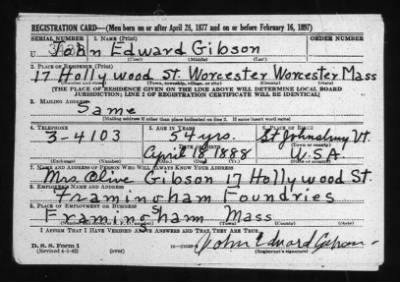 REGISTRATION CARD—(Men born on or after April 28, 1877 and on or before February 16, 1897)
SERIAL NUMBER 1. NAME (Print) ORDER NUMBER
U John Edward Gibson
(First) (Middle) (Last)
2. PLACE OF RESIDENCE (Print)
17 Hollywood St. Worcester Worcester Mass
(Number and street) (Town, township, village, or city) (County) (State)
[THE PLACE OF RESIDENCE GIVEN ON THE LINE ABOVE WILL DETERMINE LOCAL BOARD
JURISDICTION; LINE 2 OF REGISTRATION CERTIFICATE WILL BE IDENTICAL]
3. MAILING ADDRESS
Same
[Mailing address if other than place indicated on line 2. If same insert word same]
4. TELEPHONE 5. AGE IN YEARS 6. PLACE OF BIRTH
3-4103 54 yrs. St Johnsbury Vt.
DATE OF BIRTH (Town or county)
April 18 1888 U.S.A
(Exchange) (Number) (Mo.) (Day) (Yr.) (State or country)
7. NAME AND ADDRESS OF PERSON WHO WILL ALWAYS KNOW YOUR ADDRESS
Mrs Olive Gibson 17 Hollywood St.
8. EMPLOYER'S NAME AND ADDRESS
Framingham Foundries
9. PLACE OF EMPLOYMENT OR BUSINESS
Framingham Mass
(Number and street or R. F. D. number) (Town) (County) (State)
I AFFIRM THAT I HAVE VERIFIED ABOVE ANSWERS AND THAT THEY ARE TRUE.
D. S. S. Form 1
(Revised 4-1-42) (over)
John Edward Gibson
(Registrant's signature)